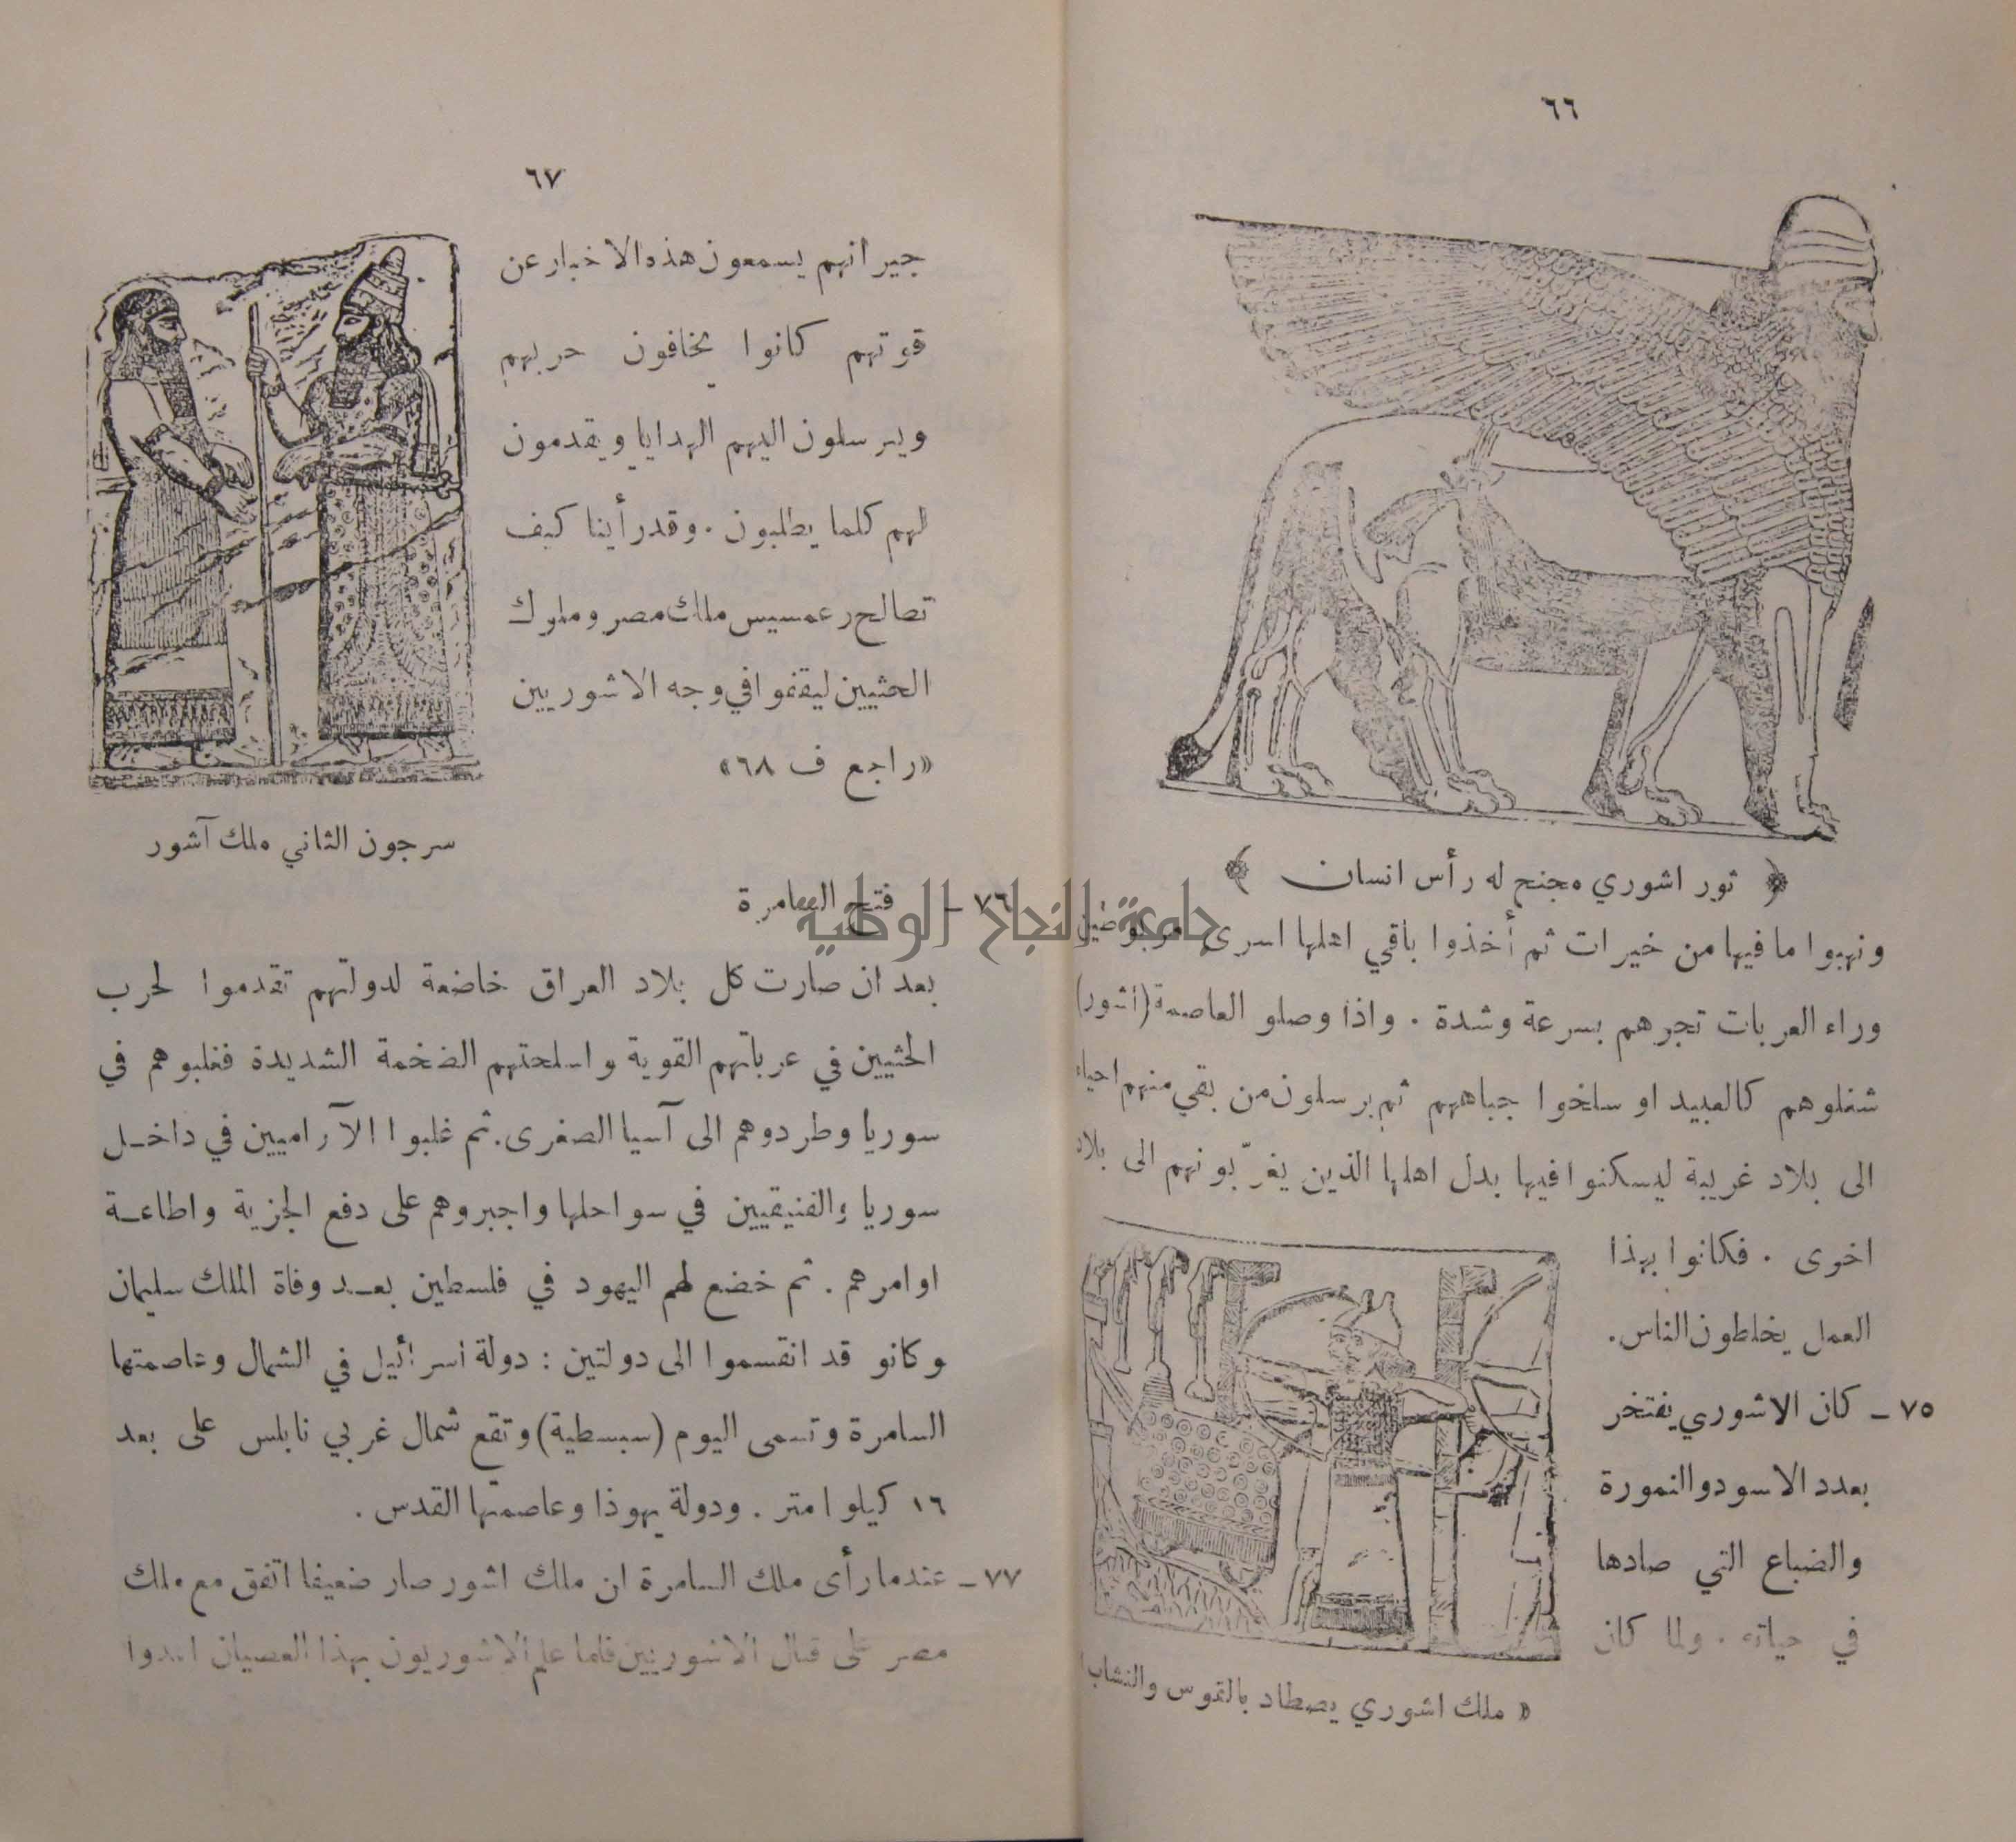 ٦٦
﴿ ثور اشوري مجنح له رأس انسان ﴾
ونهبوا ما فيها من خيرات ثم أخذوا باقي اهلها اسرى مربوطين
وراء العربات تجرهم بسرعة وشدة . واذا وصلو العاصمة (اشور)
شغلوهم كالعبيد او سلخوا جباههم ثم يرسلون من بقي منهم احياء
الى بلاد غريبة ليسكنوا فيها بدل اهلها الذين يغرّبونهم الى بلاد
اخرى . فكانوا بهذا
العمل يخلطون الناس .
٧٥ - كان الاشوري يفتخر
بعدد الاسود والنمورة
والضباع التي صادها
في حياته . ولما كان
« ملك اشوري يصطاد بالقوس والنشاب »
٦٧
جيرانهم يسمعون هذه الاخبار عن
قوتهم كانوا يخافون حربهم
ويرسلون اليهم الهدايا ويقدمون
لهم كلما يطلبون . وقد رأينا كيف
تصالح رعمسيس ملك مصر وملوك
الحثيين ليقفوا في وجه الاشوريين
«راجع ف ٦٨»
سرجون الثاني ملك آشور
٧٦ - فتح السامرة
جامعة النجاح الوطنية
بعد ان صارت كل بلاد العراق خاضعة لدولتهم تقدموا لحرب
الحثيين في عرباتهم القوية واسلحتهم الضخمة الشديدة فغلبوهم في
سوريا وطردوهم الى آسيا الصغرى . ثم غلبوا الآراميين في داخل
سوريا والفنيقيين في سواحلها واجبروهم على دفع الجزية واطاعة
اوامرهم . ثم خضع لهم اليهود في فلسطين بعد وفاة الملك سليمان
وكانو قد انقسموا الى دولتين : دولة اسرائيل في الشمال وعاصمتها
السامرة وتسمى اليوم (سبسطية) وتقع شمال غربي نابلس على بعد
١٦ كيلوا متر . ودولة يهوذا وعاصمتها القدس .
٧٧ - عندما رأى ملك السامرة ان ملك اشور صار ضعيفا اتفق مع ملك
مصر على قتال الاشوريين فلما علم الاشوريون بهذا العصيان